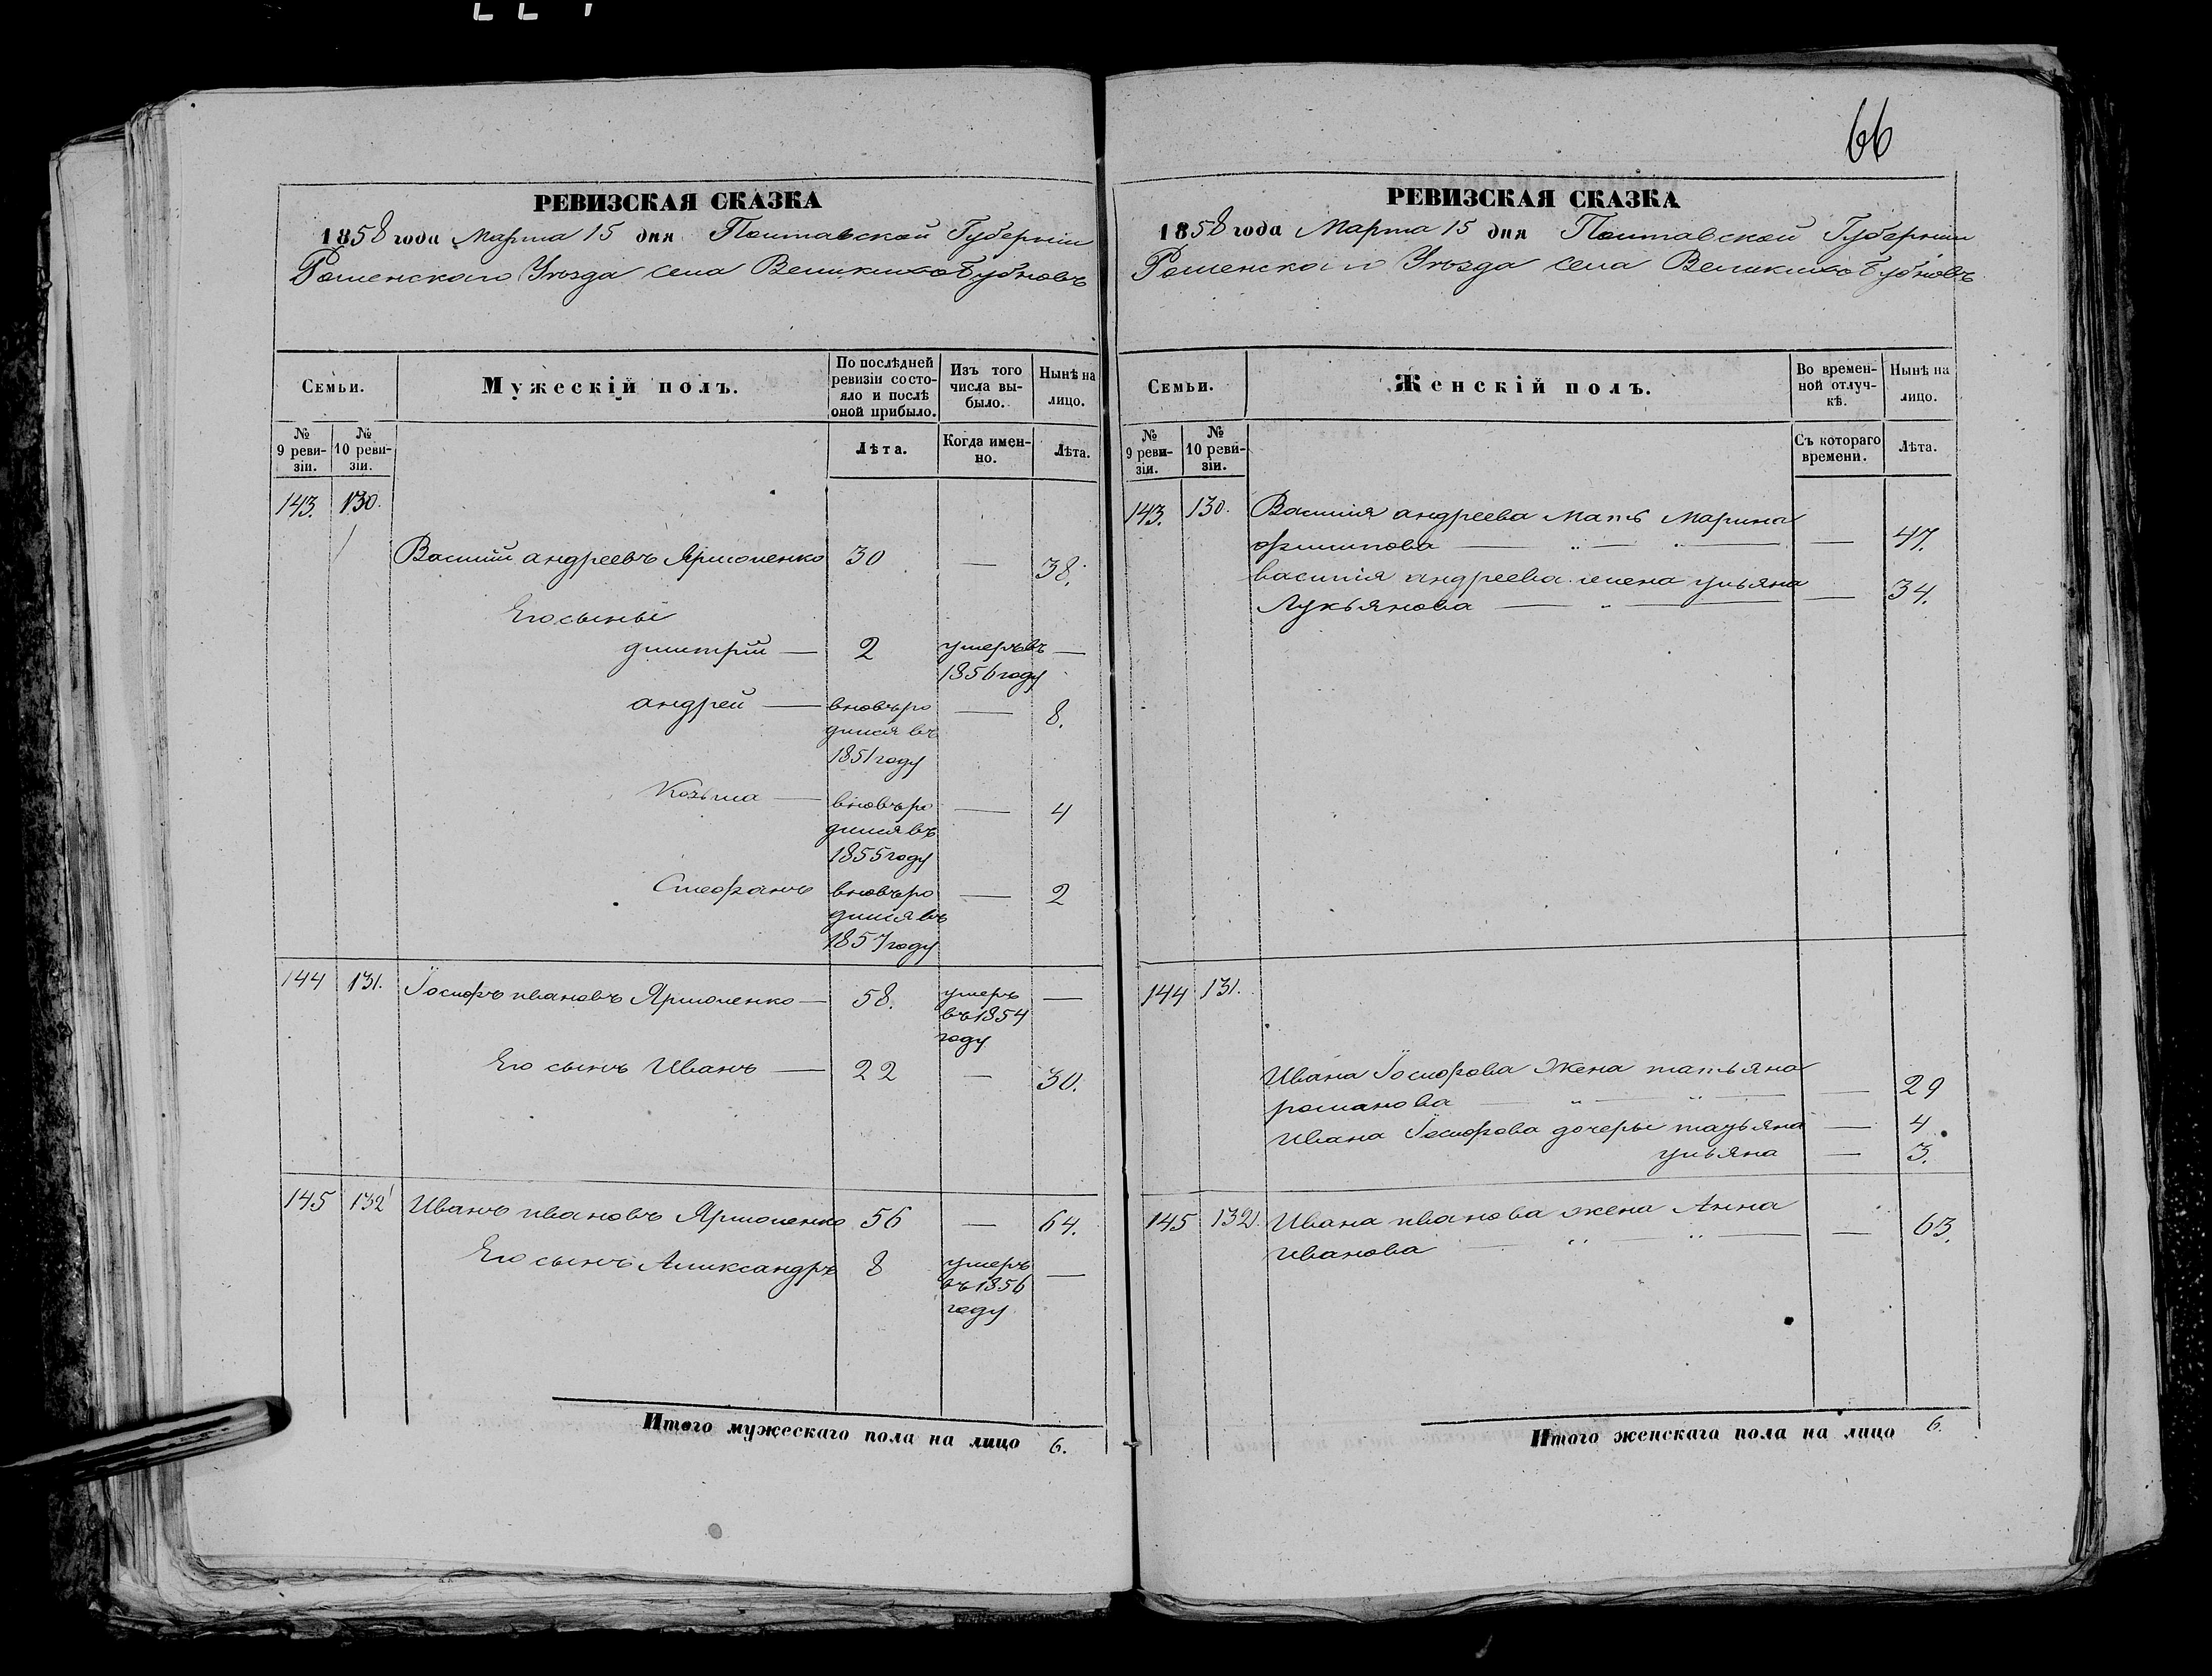 66
РЕВИЗСКАЯ СКАЗКА
1858 года Марта 15 дня Полтавской Губерніи
Роменскаго Уѣзда села Великихъ Бубновъ
Семьи.
Мужескій полъ.
По послѣдней
ревизіи состо-
яло и послѣ
оной прибыло.
Изъ того
числа вы-
было.
Нынѣ на
лицо.
№
9 реви-
зіи.
№
10 реви-
зіи.
Лѣта.
Когда имен-
но.
Лѣта.
143. 130.
Василий андреевъ Ярмоленко 30 — 38.
Его сыны
димитрий — 2 умеръ въ —
1856 году
андрей — вновь ро — 8.
дился въ
1851 году
Козьма — вновь ро — 4
дился въ
1855 году
Стефанъ вновь ро — 2
дился въ
1857 году
144 131. Іосифъ ивановъ Ярмоленко — 58. умеръ —
въ 1854
году
Его сынъ Иванъ — 22 — 30.
145 132 Иванъ ивановъ Ярмоленко 56 — 64.
Его сынъ Александръ 8 умеръ —
въ 1856
году
Итого мужескаго пола на лицо 6.
РЕВИЗСКАЯ СКАЗКА
1858 года Марта 15 дня Полтавской Губерніи
Роменскаго Уѣзда села Великихъ Бубновъ
Семьи.
Женскій полъ.
Во времен-
ной отлуч-
кѣ.
Нынѣ на
лицо.
№
9 реви-
зіи.
№
10 реви-
зіи.
Съ котораго
времени.
Лѣта.
143. 130. Василия андреева мать Марина
филипова — — 47.
василия андреева жена ульяна
Лукьянова — — 34.
144 131.
Ивана Іосифова жена татьяна
романова — — 29
Ивана Іосифова дочери татьяна — 4
ульяна — 3.
145 132. Ивана иванова жена Анна
иванова — — 63.
Итого женскаго пола на лицо 6.